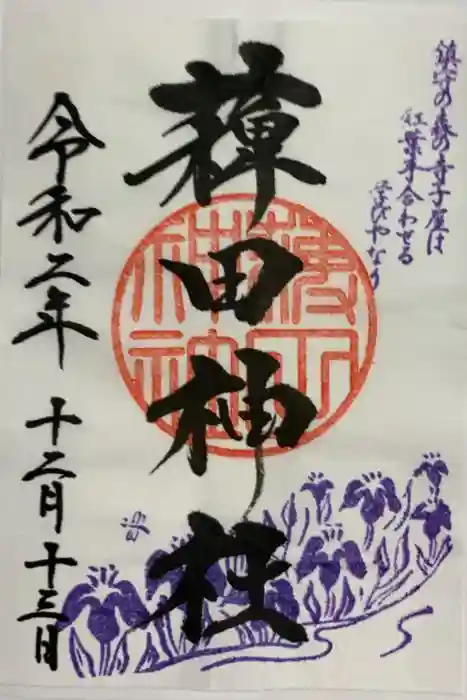 鎮守の森の寺子屋は
紅葉手合わせる
学びやなり
薭田神社
薭田
神社
令和二年 十二月十三日